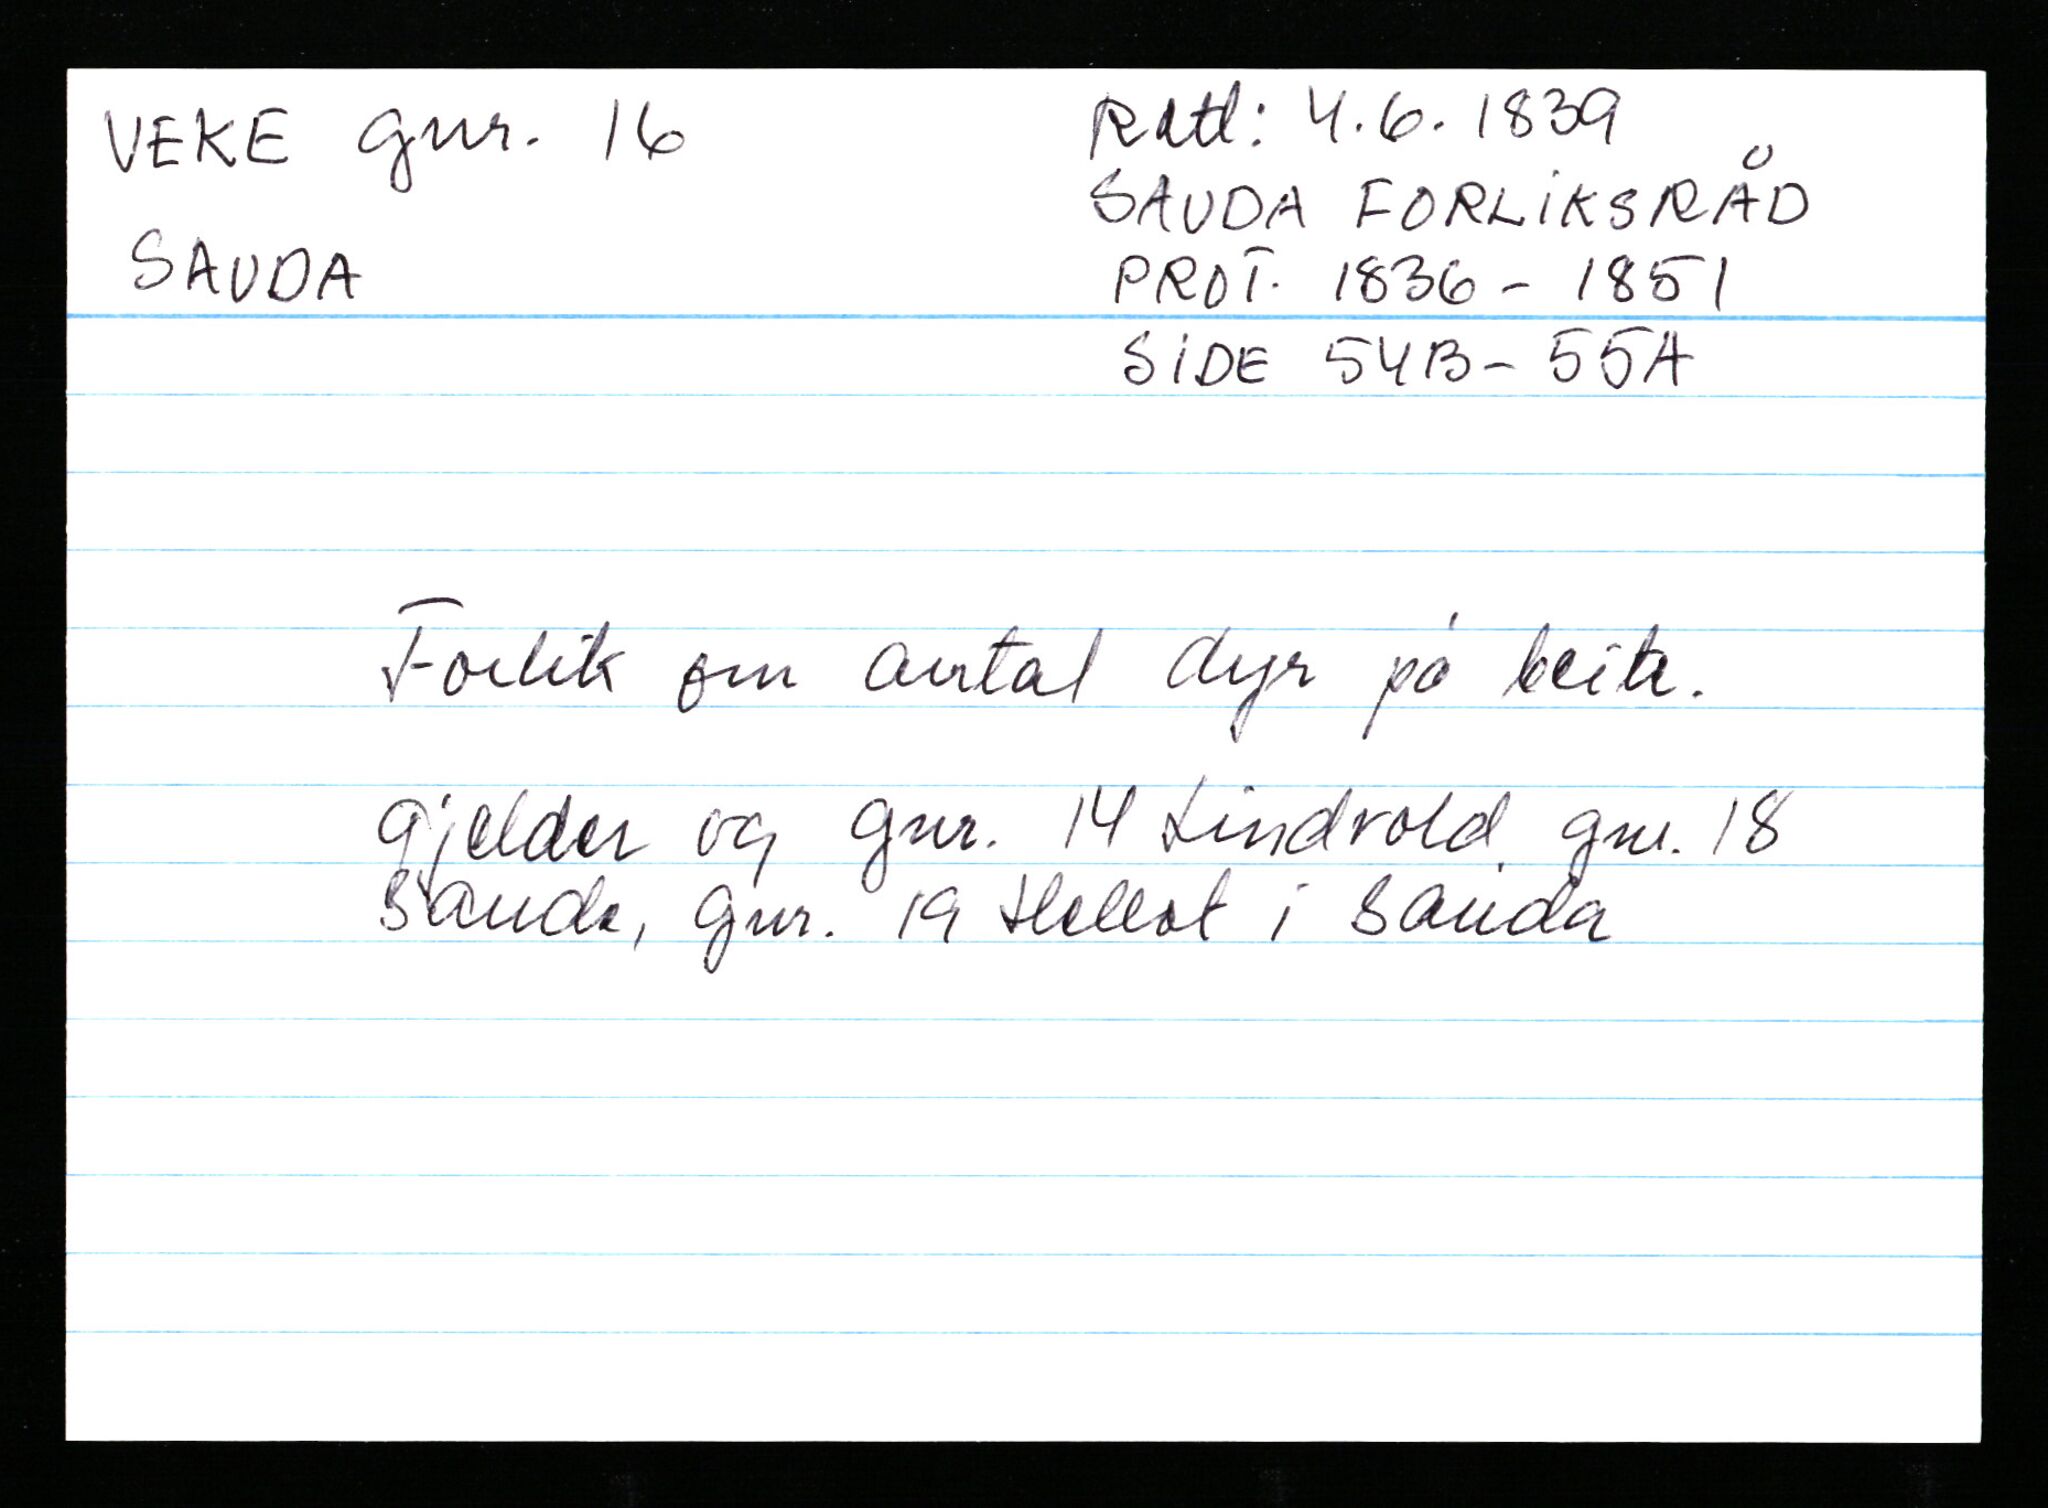 VEKE gnr. 16
SAUDA
Ratl: 4.6.1839
SAUDA FORLIKSRÅD
PROT. 1836 - 1851
SIDE 54B - 55A
Forlik om antal dyr på beite.
Gjelder og gnr. 14 Lindvold, gnr. 18
Sauda, gnr. 19 Hellat i Sauda